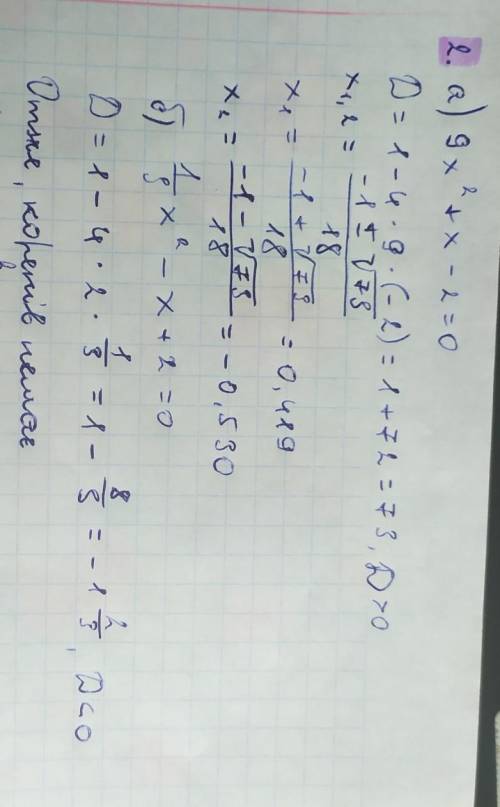 2. а) 9x² + x - 2 = 0
D = 1 - 4 · 9 · (-2) = 1 + 72 = 73, D > 0
x₁,₂ = (-1 ± √73)/18
x₁ = (-1 + √73)/18 = 0,419
x₂ = (-1 - √73)/18 = -0,530
б) 1/3 x² - x + 2 = 0
D = 1 - 4 · 2 · 1/3 = 1 - 8/3 = -1 2/3, D < 0
Отже, коренів немає